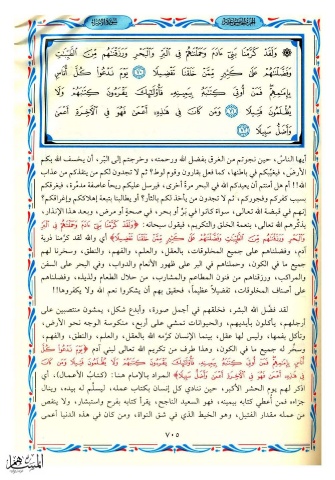 ﴿ وَلَقَدْ كَرَّمْنَا بَنِي ءَادَمَ وَحَمَلْنَٰهُمْ فِي الْبَرِّ وَالْبَحْرِ وَرَزَقْنَٰهُم مِّنَ الطَّيِّبَٰتِ
وَفَضَّلْنَٰهُمْ عَلَىٰ كَثِيرٍ مِّمَّنْ خَلَقْنَا تَفْضِيلًا ۝ يَوْمَ نَدْعُوا كُلَّ أُنَاسٍ
بِإِمَٰمِهِمْ فَمَنْ أُوتِيَ كِتَٰبَهُ بِيَمِينِهِ فَأُولَٰئِكَ يَقْرَءُونَ كِتَٰبَهُمْ وَلَا
يُظْلَمُونَ فَتِيلًا ۝ وَمَن كَانَ فِي هَٰذِهِ أَعْمَىٰ فَهُوَ فِي الْآخِرَةِ أَعْمَىٰ
وَأَضَلُّ سَبِيلًا
أيها الناسُ، حين نجوتم من الغرق بفضل الله ورحمته، وخرجتم إلى البّر، أن يخسف الله بكم
الأرض، فيغيّبكم في باطنها، كما فعل بقارون وقوم لوط؟ ثم لا تجدون لكم من ينقذكم من عذاب
الله!! أم هل أمنتم أن يعيدكم الله في البحر مرة أخرى، فيرسل عليكم ريحاً عاصفة مدمّرة، فيغرقكم
بسبب كفركم وفجوركم، ثم لا تجدون من يأخذ لكم بالثأر؟ أو يطالبنا بتبعة إهلاككم وإغراقكم؟
إنهم في قبضة الله تعالى، سواء كانوا في برٍّ أو بحر، في صحةٍ أو مرض، وبعد هذا الإنذار،
يذكّرهم الله تعالى، بنعمة الخلق والتكريم، فيقول سبحانه: ﴿وَلَقَدْ كَرَّمْنَا بَنِي ءَادَمَ وَحَمَلْنَٰهُمْ فِي الْبَرِّ
وَالْبَحْرِ وَرَزَقْنَٰهُم مِّنَ الطَّيِّبَٰتِ وَفَضَّلْنَٰهُمْ عَلَىٰ كَثِيرٍ مِّمَّنْ خَلَقْنَا تَفْضِيلًا﴾ أي والله لقد كرّمنا ذرية
آدم، وفضلناهم على جميع المخلوقات، بالعقل، والعلم، والفهم، والنطق، وسخرنا لهم
جميع ما في الكون، وحملناهم في البر على ظهور الأنعام والدواب، وفي البحر على السفن
والمراكب، ورزقناهم من فنون المطاعم والمشارب، من حلال الطعام ولذيذه، وفضلناهم
على أصناف المخلوقات، تفضيلاً عظيماً، فحقيق بهم أن يشكروا نعم الله ولا يكفروها!!
لقد فضّل الله البشر، فخلقهم في أجمل صورة، وأبدع شكل، يمشون منتصبين على
أرجلهم، يأكلون بأيديهم، والحيوانات تمشي على أربع، منكوسة الوجه نحو الأرض،
وتأكل بفمها، وليس لها عقل، بينما الإنسان كرّمه الله بالعقل، والعلم، والنطق، والفهم،
وسخّر له جميع ما في الكون، وهذا طرف من تكريم الله تعالى لبني آدم ﴿يَوْمَ نَدْعُوا كُلَّ
أُنَاسٍ بِإِمَٰمِهِمْ فَمَنْ أُوتِيَ كِتَٰبَهُ بِيَمِينِهِ فَأُولَٰئِكَ يَقْرَءُونَ كِتَٰبَهُمْ وَلَا يُظْلَمُونَ فَتِيلًا وَمَن كَانَ
فِي هَٰذِهِ أَعْمَىٰ فَهُوَ فِي الْآخِرَةِ أَعْمَىٰ وَأَضَلُّ سَبِيلًا﴾ المراد بالإمام هنا: (كتابُ الأعمال)، أي
اذكر لهم يوم الحشر الأكبر، حين ننادي كل إنسان بكتاب عمله، ليسلّم له بيده، وينال
جزاءه فمن أعطي كتابه بيمينه، فهو السعيد الناجح، يقرأ كتابه بفرح واستبشار، ولا ينقص
من عمله مقدار الفتيل، وهو الخيط الذي في شق النواة، ومن كان في هذه الدنيا أعمى
٧٠٥